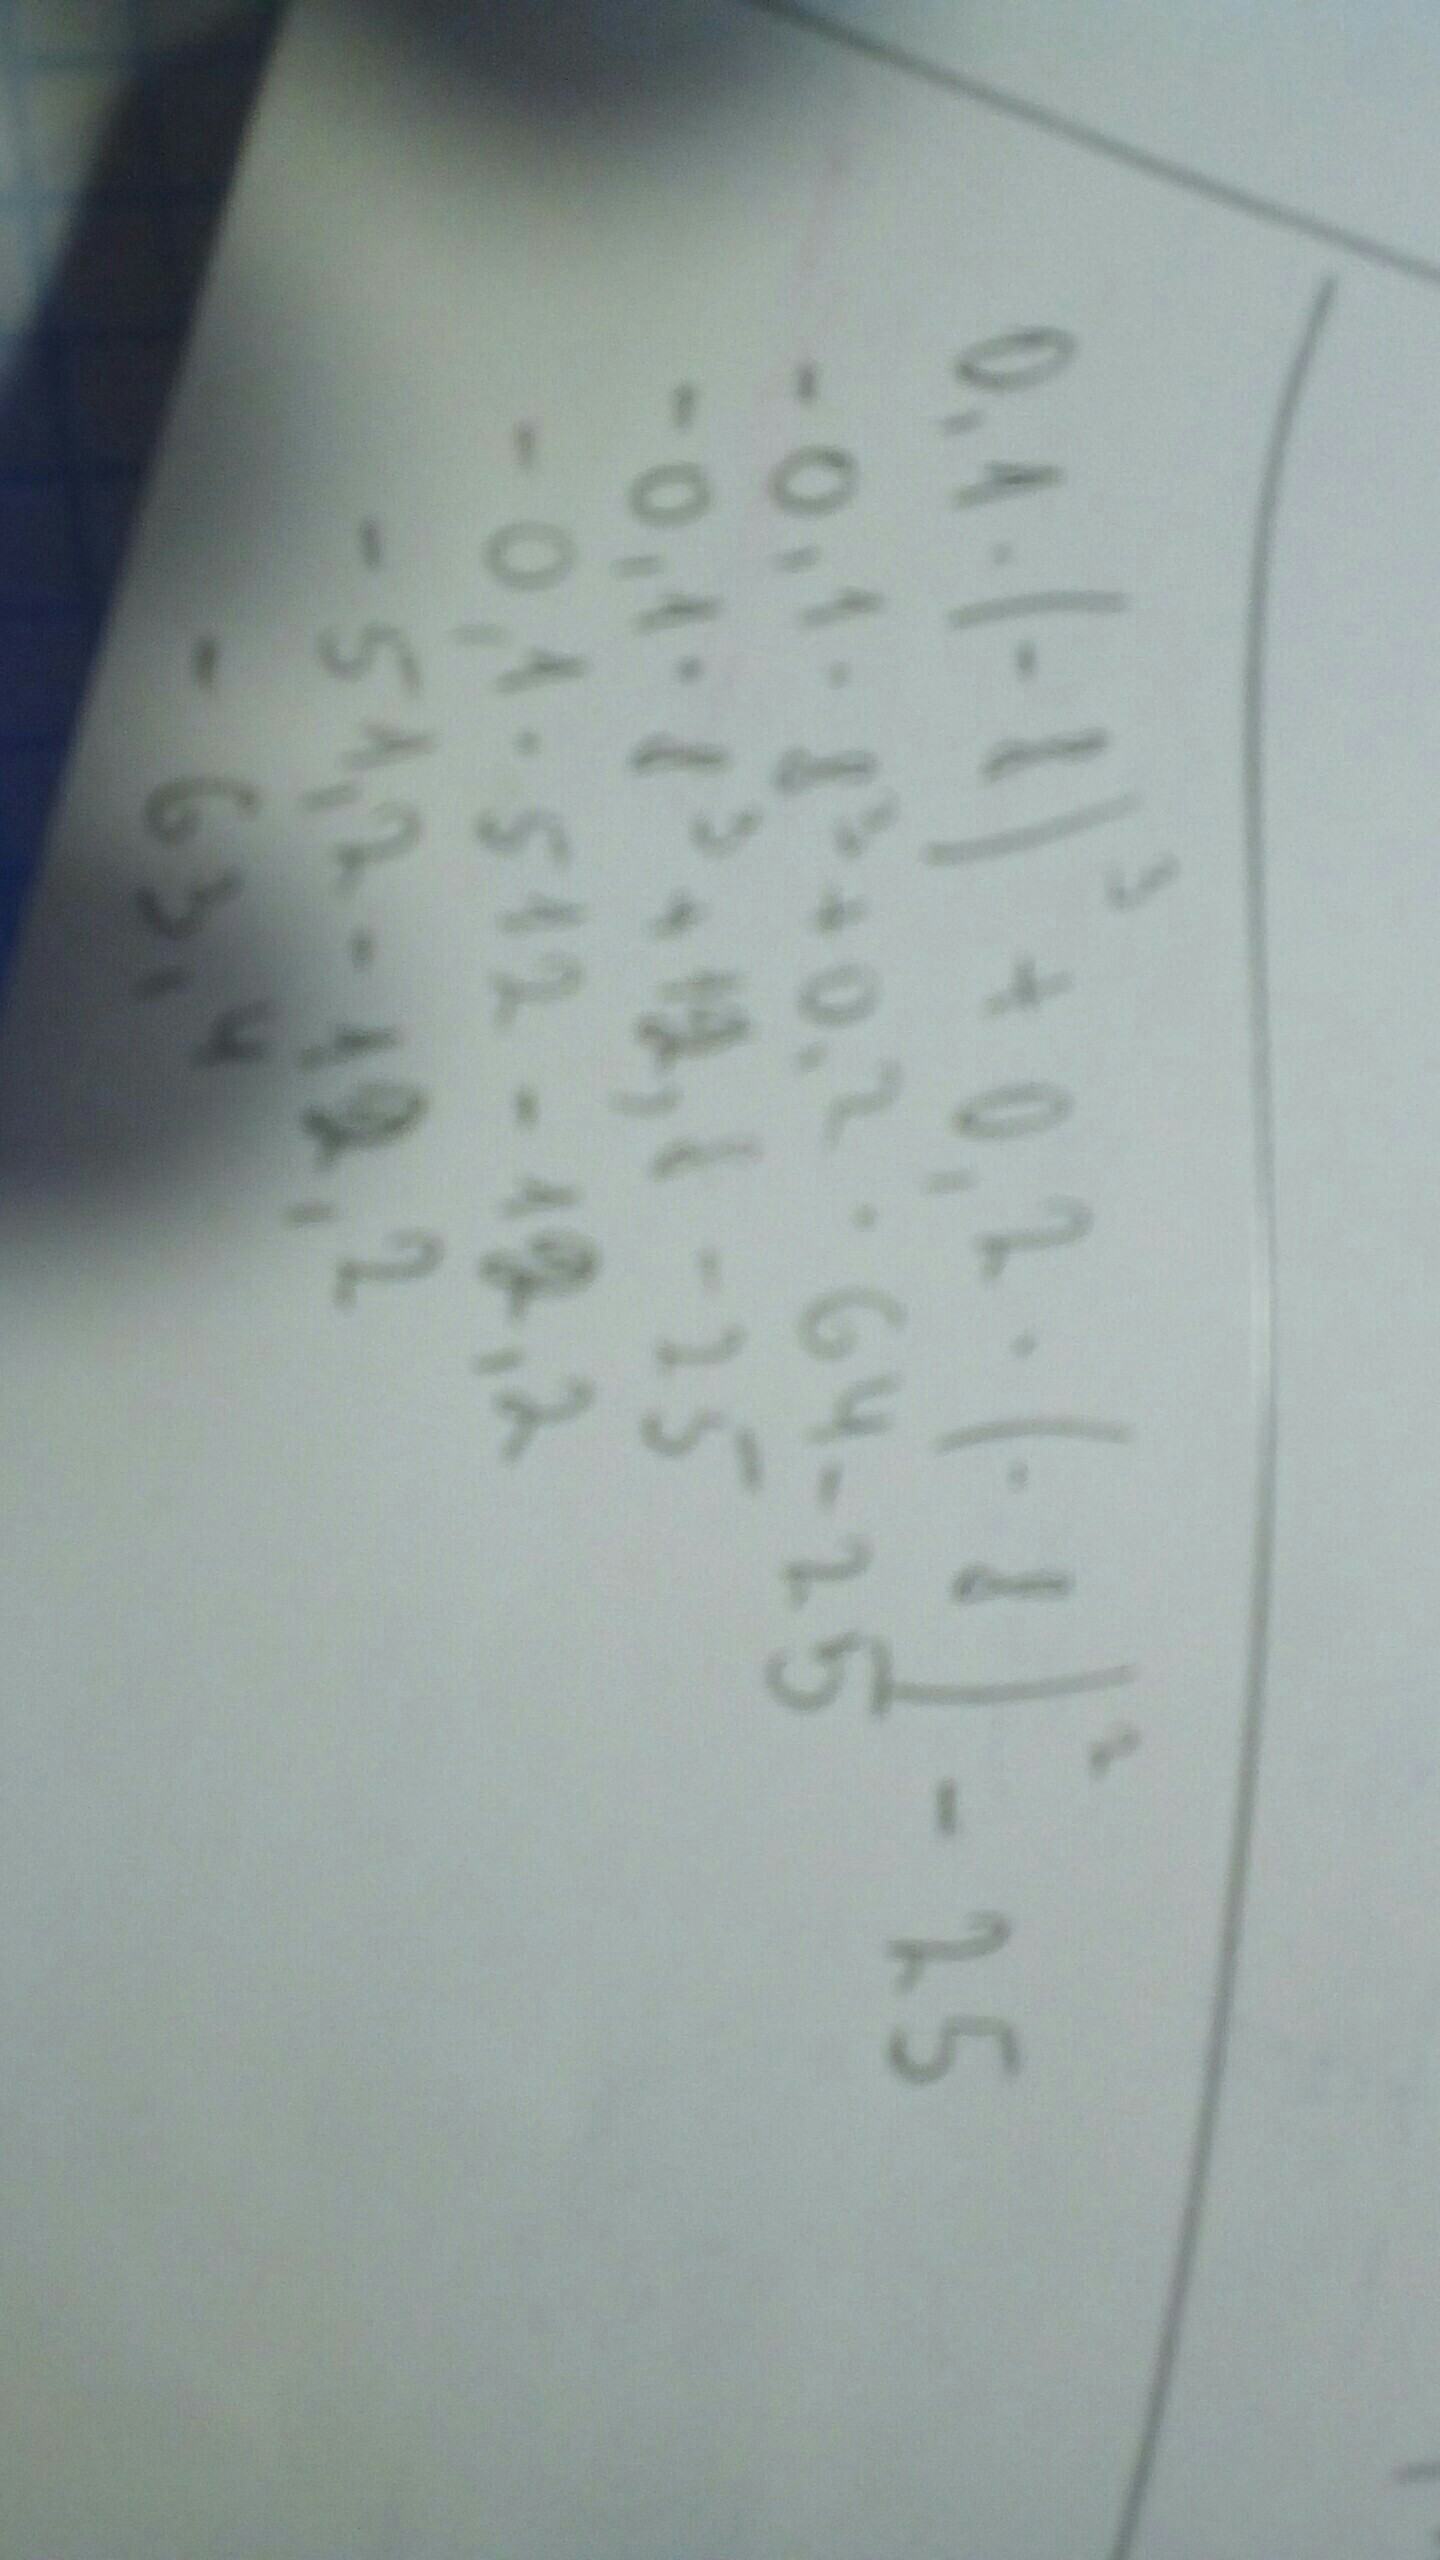 0,1·(-8)³ + 0,2·(-8)² - 25
-0,1·8³+0,2·64-25
-0,1·8³+12,8-25
-0,1·512-12,2
-51,2-12,2
-63,4